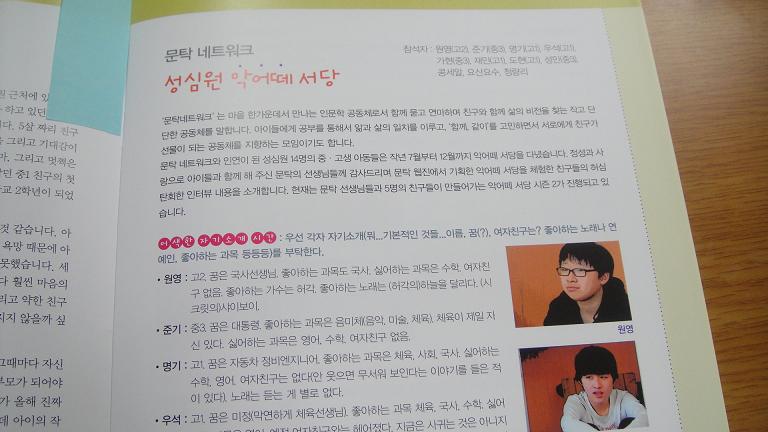 문탁 네트워크
성심원 악어떼 서당
참석자 : 원영(고2), 준기(중3), 명기(고1), 우석(고1),
가현(중3), 재민(고1), 도현(고1), 성민(중3),
콩세알, 요산요수, 청량리
'문탁네트워크' 는 마을 한가운데서 만나는 인문학 공동체로서 함께 묻고 연마하며 친구와 함께 삶의 비전을 찾는 작고 단
단한 공동체를 말합니다. 아이들에게 공부를 통해서 앎과 삶의 일치를 이루고, '함께, 같이'를 고민하면서 서로에게 친구가
선물이 되는 공동체를 지향하는 모임이기도 합니다.
문탁 네트워크와 인연이 된 성심원 14명의 중 · 고생 아동들은 작년 7월부터 12월까지 악어떼 서당을 다녔습니다. 정성과 사
랑으로 아이들과 함께 해 주신 문탁의 선생님들께 감사드리며 문탁 웹진에서 기획한 악어떼 서당을 체험한 친구들의 허심
탄회한 인터뷰 내용을 소개합니다. 현재는 문탁 선생님들과 5명의 친구들이 만들어가는 악어떼 서당 시즌 2가 진행되고 있
습니다.
어색한 자기소개 시간 : 우선 각자 자기소개(뭐...기본적인 것들...이름, 꿈(?), 여자친구는? 좋아하는 노래나 연
예인, 좋아하는 과목 등등등)를 부탁한다.
• 원영 : 고2, 꿈은 국사선생님, 좋아하는 과목도 국사, 싫어하는 과목은 수학, 여자친
구 없음, 좋아하는 가수는 허각, 좋아하는 노래는 (허각의)하늘을 달리다, (시
크릿의)샤이보이.
원영
• 준기 : 중3, 꿈은 대통령, 좋아하는 과목은 음미체(음악, 미술, 체육), 체육이 제일 자
신 있다. 싫어하는 과목은 영어, 수학, 여자친구 없음.
• 명기 : 고1, 꿈은 자동차 정비엔지니어, 좋아하는 과목은 체육, 사회, 국사, 싫어하는
수학, 영어, 여자친구는 없다(안 웃으면 무서워 보인다는 이야기를 들은 적
이 있다). 노래는 듣는 게 별로 없다.
• 우석 : 고1, 꿈은 미정(막연하게 체육선생님), 좋아하는 과목 체육, 국사, 수학, 싫어
근처에 있
하고 있던
다. 5살 짜리 친구
그리고 기대감이
그리고 멋쩍은
중1 친구의 첫
2학년이 되었
것 같습니다. 아
욕망 때문에 아
못했습니다. 세
다 훨씬 마음의
리고 약한 친구
지지 않을까 싶
그때마다 자신
부모가 되어야
가 올해 진짜
데 아이의 작